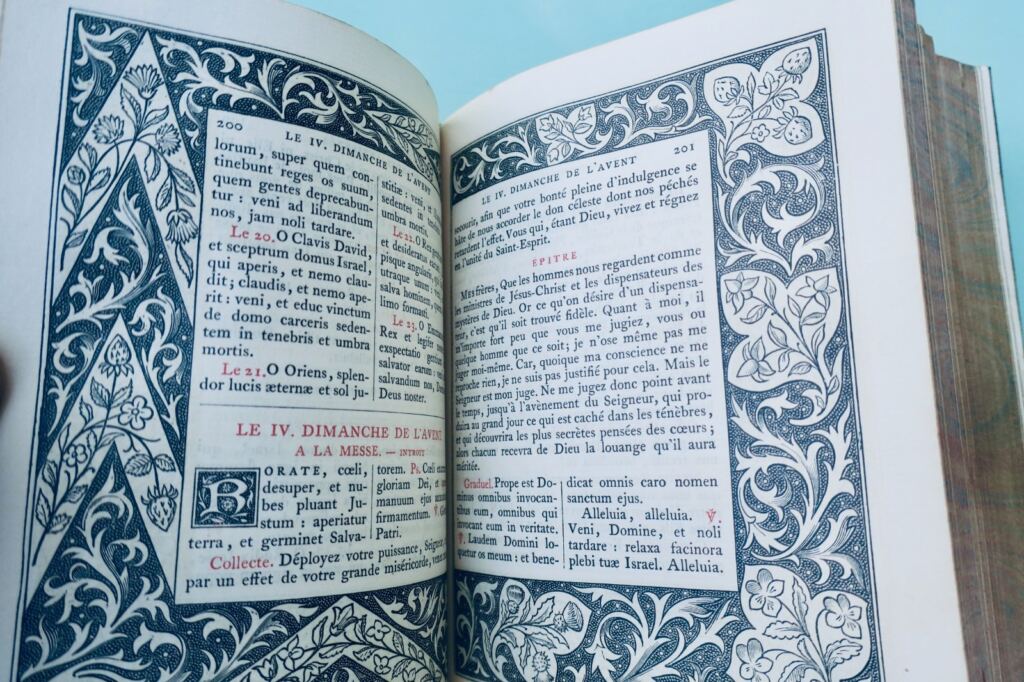 200
LE IV. DIMANCHE DE L'AVENT
lorum, super quem con-
tinebunt reges os suum,
quem gentes deprecabun-
tur : veni ad liberandum
nos, jam noli tardare.
Le 20. O Clavis David,
et sceptrum domus Israel,
qui aperis, et nemo clau-
dit ; claudis, et nemo ape-
rit : veni, et educ vinctum
de domo carceris seden-
tem in tenebris et umbra
mortis.
Le 21. O Oriens, splen-
dor lucis æternæ et sol ju-
stitiæ : veni, et
sedentes in
umbra mortis.
Le 22. O Rex
et desideratus
pisque angularis,
utraque unum
salva hominem,
limo formasti.
Le 23. O
Rex et legifer
exspectatio
salvator earum :
salvandum nos,
Deus noster.
LE IV. DIMANCHE DE L'AVENT
A LA MESSE. — INTROIT
RORATE, cœli,
desuper, et nu-
bes pluant Ju-
stum : aperiatur
terra, et germinet Salva-
torem. Ps. Cœli
gloriam Dei, et
manuum ejus
firmamentum. ℣.
Patri.
Collecte. Déployez votre puissance,
par un effet de votre grande miséricorde,
LE IV. DIMANCHE DE L'AVENT
201
secourir, afin que votre bonté pleine d'indulgence se
hâte de nous accorder le don céleste dont nos péchés
retardent l'effet. Vous qui, étant Dieu, vivez et régnez
en l'unité du Saint-Esprit.
EPITRE
MES frères, Que les hommes nous regardent comme
les ministres de Jésus-Christ et les dispensateurs des
mystères de Dieu. Or ce qu'on désire d'un dispensa-
teur, c'est qu'il soit trouvé fidèle. Quant à moi, il
m'importe fort peu que vous me jugiez, vous ou
quelque homme que ce soit ; je n'ose même pas me
juger moi-même. Car, quoique ma conscience ne me
reproche rien, je ne suis pas justifié pour cela. Mais le
Seigneur est mon juge. Ne me jugez donc point avant
le temps, jusqu'à l'avènement du Seigneur, qui pro-
duira au grand jour ce qui est caché dans les ténèbres,
et qui découvrira les plus secrètes pensées des cœurs ;
alors chacun recevra de Dieu la louange qu'il aura
méritée.
Graduel. Prope est Do-
minus omnibus invocan-
tibus eum, omnibus qui
invocant eum in veritate.
℣. Laudem Domini lo-
quetur os meum : et bene-
dicat omnis caro nomen
sanctum ejus.
Alleluia, alleluia. ℣.
Veni, Domine, et noli
tardare : relaxa facinora
plebi tuæ Israel. Alleluia.